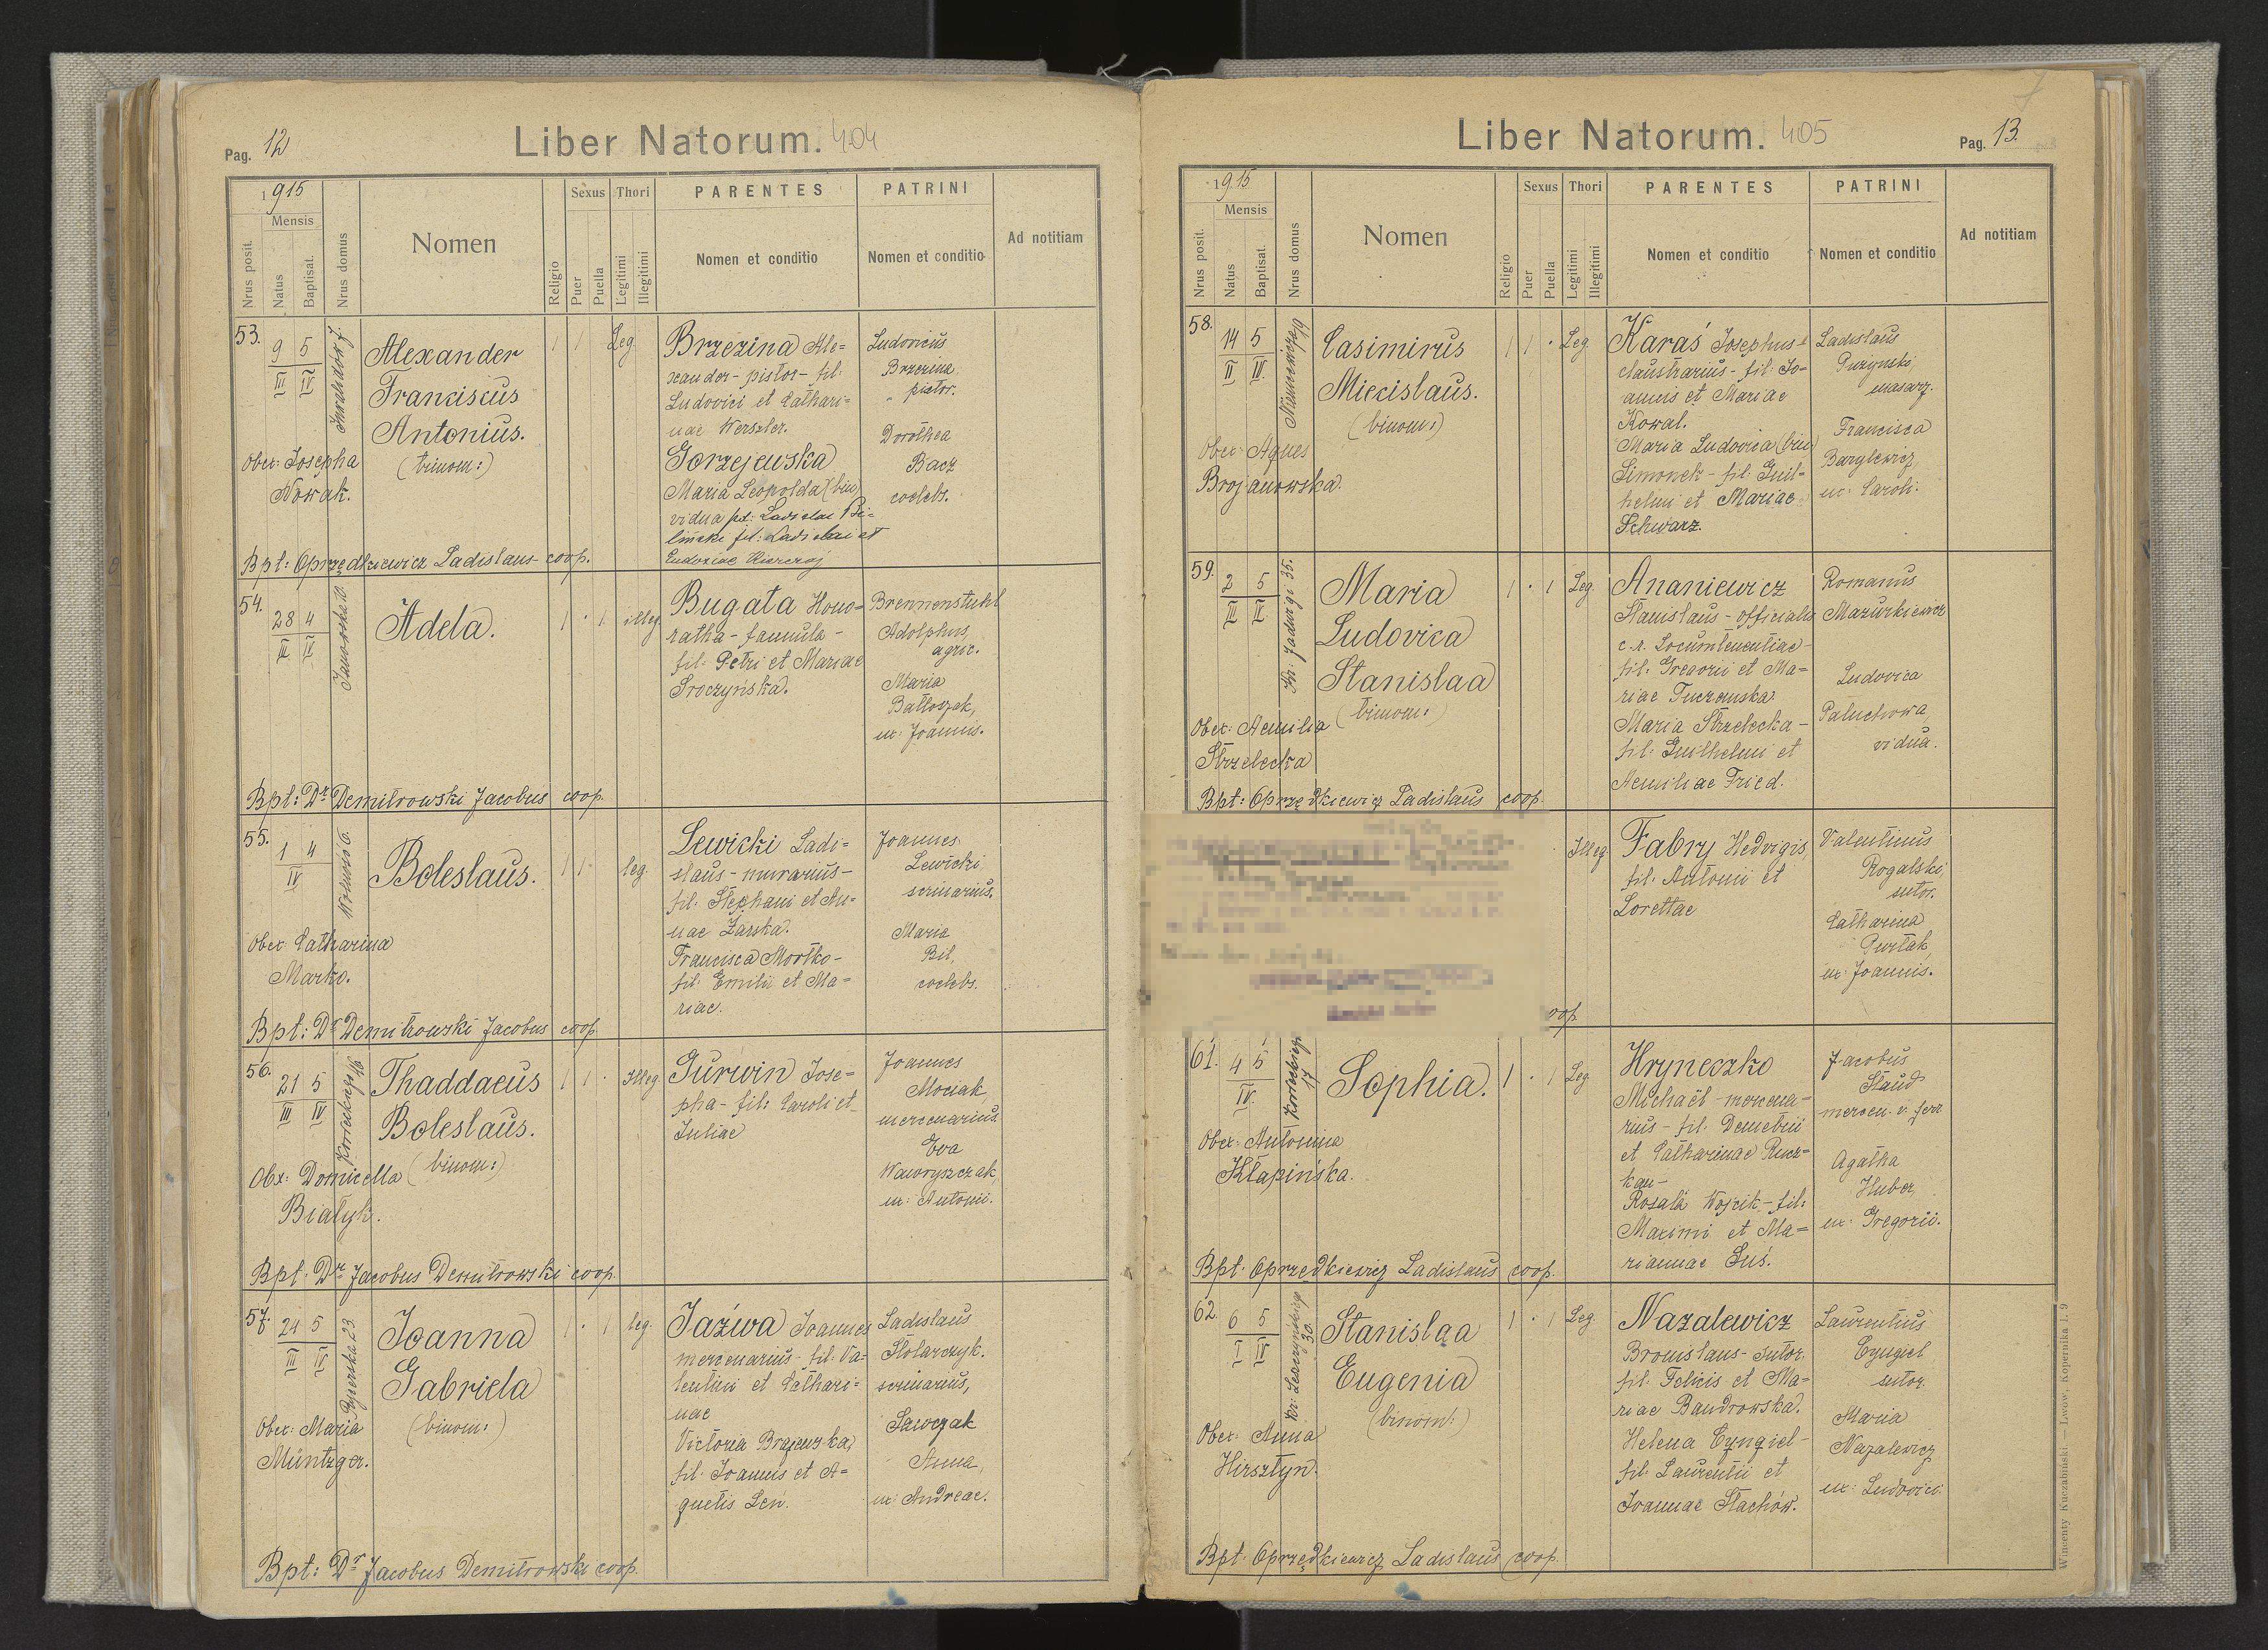 Pag. 12
Liber Natorum. 404
1915
Mensis
Nrus posit.
Natus
Baptisat.
Nrus domus
Nomen
Religio
Sexus
Puer
Puella
Thori
Legitimi
Illegitimi
PARENTES
Nomen et conditio
PATRINI
Nomen et conditio
Ad notitiam
53.
9 5
III IV
Alexander
Franciscus
Antonius.
(trinom:)
Obet: Josepha
Nowak.
1 1
Leg.
Brzezina Ale=
xander - pistor - fil.
Ludovici et Cathari=
nae Werszler.
Gorzejewska
Maria Leopolda (bin)
vidua pd: Ladislai Bi=
linski fil: Ladislai et
Eudoxiae
Ludovicus
Brzezina
pistor.
Dorothea
Bacz
coelebs.
Bpt: Oprzędkiewicz Ladislaus coop.
54.
28 4
III IV
Janowska 10.
Adela.
1 · 1
illeg.
Bugata Hono=
ratha - famula -
fil. Petri et Mariae
Sroczyńska.
Brennenstuhl
Adolphus,
agric.
Maria
Bałtoszak,
ux: Joannis.
Bpt: Dr Demitrowski Jacobus coop.
55.
1 4
IV
6.
Boleslaus.
Obet: Catharina
Marko.
1 1 ·
leg.
Lewicki Ladi=
slaus - murarius -
fil. Stephani et An=
nae Żarska.
Francisca Mortko -
fil. Emilii et Ma=
riae.
Joannes
Lewicki,
scrinarius.
Maria
Bil,
coelebs.
Bpt: Dr Demitrowski Jacobus coop.
56.
21 5
III IV
46
Thaddaeus
Boleslaus.
(binom:)
Obx: Domicella
Białyk.
1 1 ·
Illeg
Gurwin Jose=
pha - fil: Caroli et
Juliae
Joannes
Mociak,
mercenarius.
Eva
Wawryszczak,
ux: Antonii.
Bpt. Dr Jacobus Demitrowski coop.
57.
24 5
III IV
23.
Joanna
Gabriela
(binom:)
Obet: Maria
Müntzger.
1 · 1
leg.
Jaźwa Joannes
mercenarius - fil. Va=
lentini et Cathari=
nae
Victoria Brajewska,
fil. Joannis et A=
gnetis Leń.
Ladislaus
Stolarczyk.
scrinarius,
Sawczak
Anna,
ux: Andreae.
Bpt: Dr Jacobus Demitrowski coop.
Liber Natorum. 405
Pag. 13.
1915
Mensis
Nrus posit.
Natus
Baptisat.
Nrus domus
Nomen
Religio
Sexus
Puer
Puella
Thori
Legitimi
Illegitimi
PARENTES
Nomen et conditio
PATRINI
Nomen et conditio
Ad notitiam
58.
14 5
II IV.
Niemcewicza 19
Casimirus
Miecislaus.
(binom:)
Obet: Agnes
Brojanowska.
1 1 ·
Leg.
Karaś Josephus -
claustrarius - fil. Jo-
annis et Mariae
Kowal.
Maria Ludovica (bin)
Simonek - fil. Guil=
helmi et Mariae
Schwarz.
Ladislaus
Puzynski,
masarz.
Francisca
Barylewicz
ux: Caroli.
59.
2 5
III IV
Kr: Jadwigi 35.
Maria
Ludovica
Stanislaa
(trinom:)
Obet: Aemilia
Strzelecka
1 · 1
Leg.
Ananiewicz
Stanislaus - officialis
c.r. Locumtenentiae -
fil: Gregorii et Ma=
riae
Maria Strzelecka -
fil: Guilhelmi et
Aemiliae Fried.
Romanus
Mazurkiewicz
Ludovica
Paluchowa,
vidua.
Bpt: Oprzędkiewicz Ladislaus coop.
Illeg
Fabry Hedvigis,
fil. Antonii et
Lorettae
Valentinus
Rogalski,
sutor.
Catharina
Purtak,
ux: Joannis.
oop.
61.
4 5
IV.
17
Sophia.
Obet: Antonina
Kłapińska.
1 · 1
Leg.
Hryneczko
Michaël - mercena-
rius - fil. Demetrii
et Catharinae Rucz=
kan -
Rosala Wojcik - fil:
Maximi et Ma=
riannae Suś.
Jacobus
Staud
mercen. v. ferr.
Agatha
Huber,
ux: Gregorii.
Bpt. Oprzędkiewicz Ladislaus coop.
62.
6 5
I IV
Kr: Leszczyńskiego
30.
Stanislaa
Eugenia
(binom:)
Obet: Anna
Hirsztyn.
1 · 1
Leg.
Nazalewicz
Bronislaus - sutor.
fil. Felicis et Ma=
riae Bandrowska.
Helena Cyngiel -
fil. Laurentii et
Joannae Stachów.
Laurentius
Cyngiel
sutor.
Maria
Nazalewicz
ux: Ludovici.
Bpt. Oprzędkiewicz Ladislaus coop.
Wincenty Kuczabiński. - Lwów, Kopernika l. 9